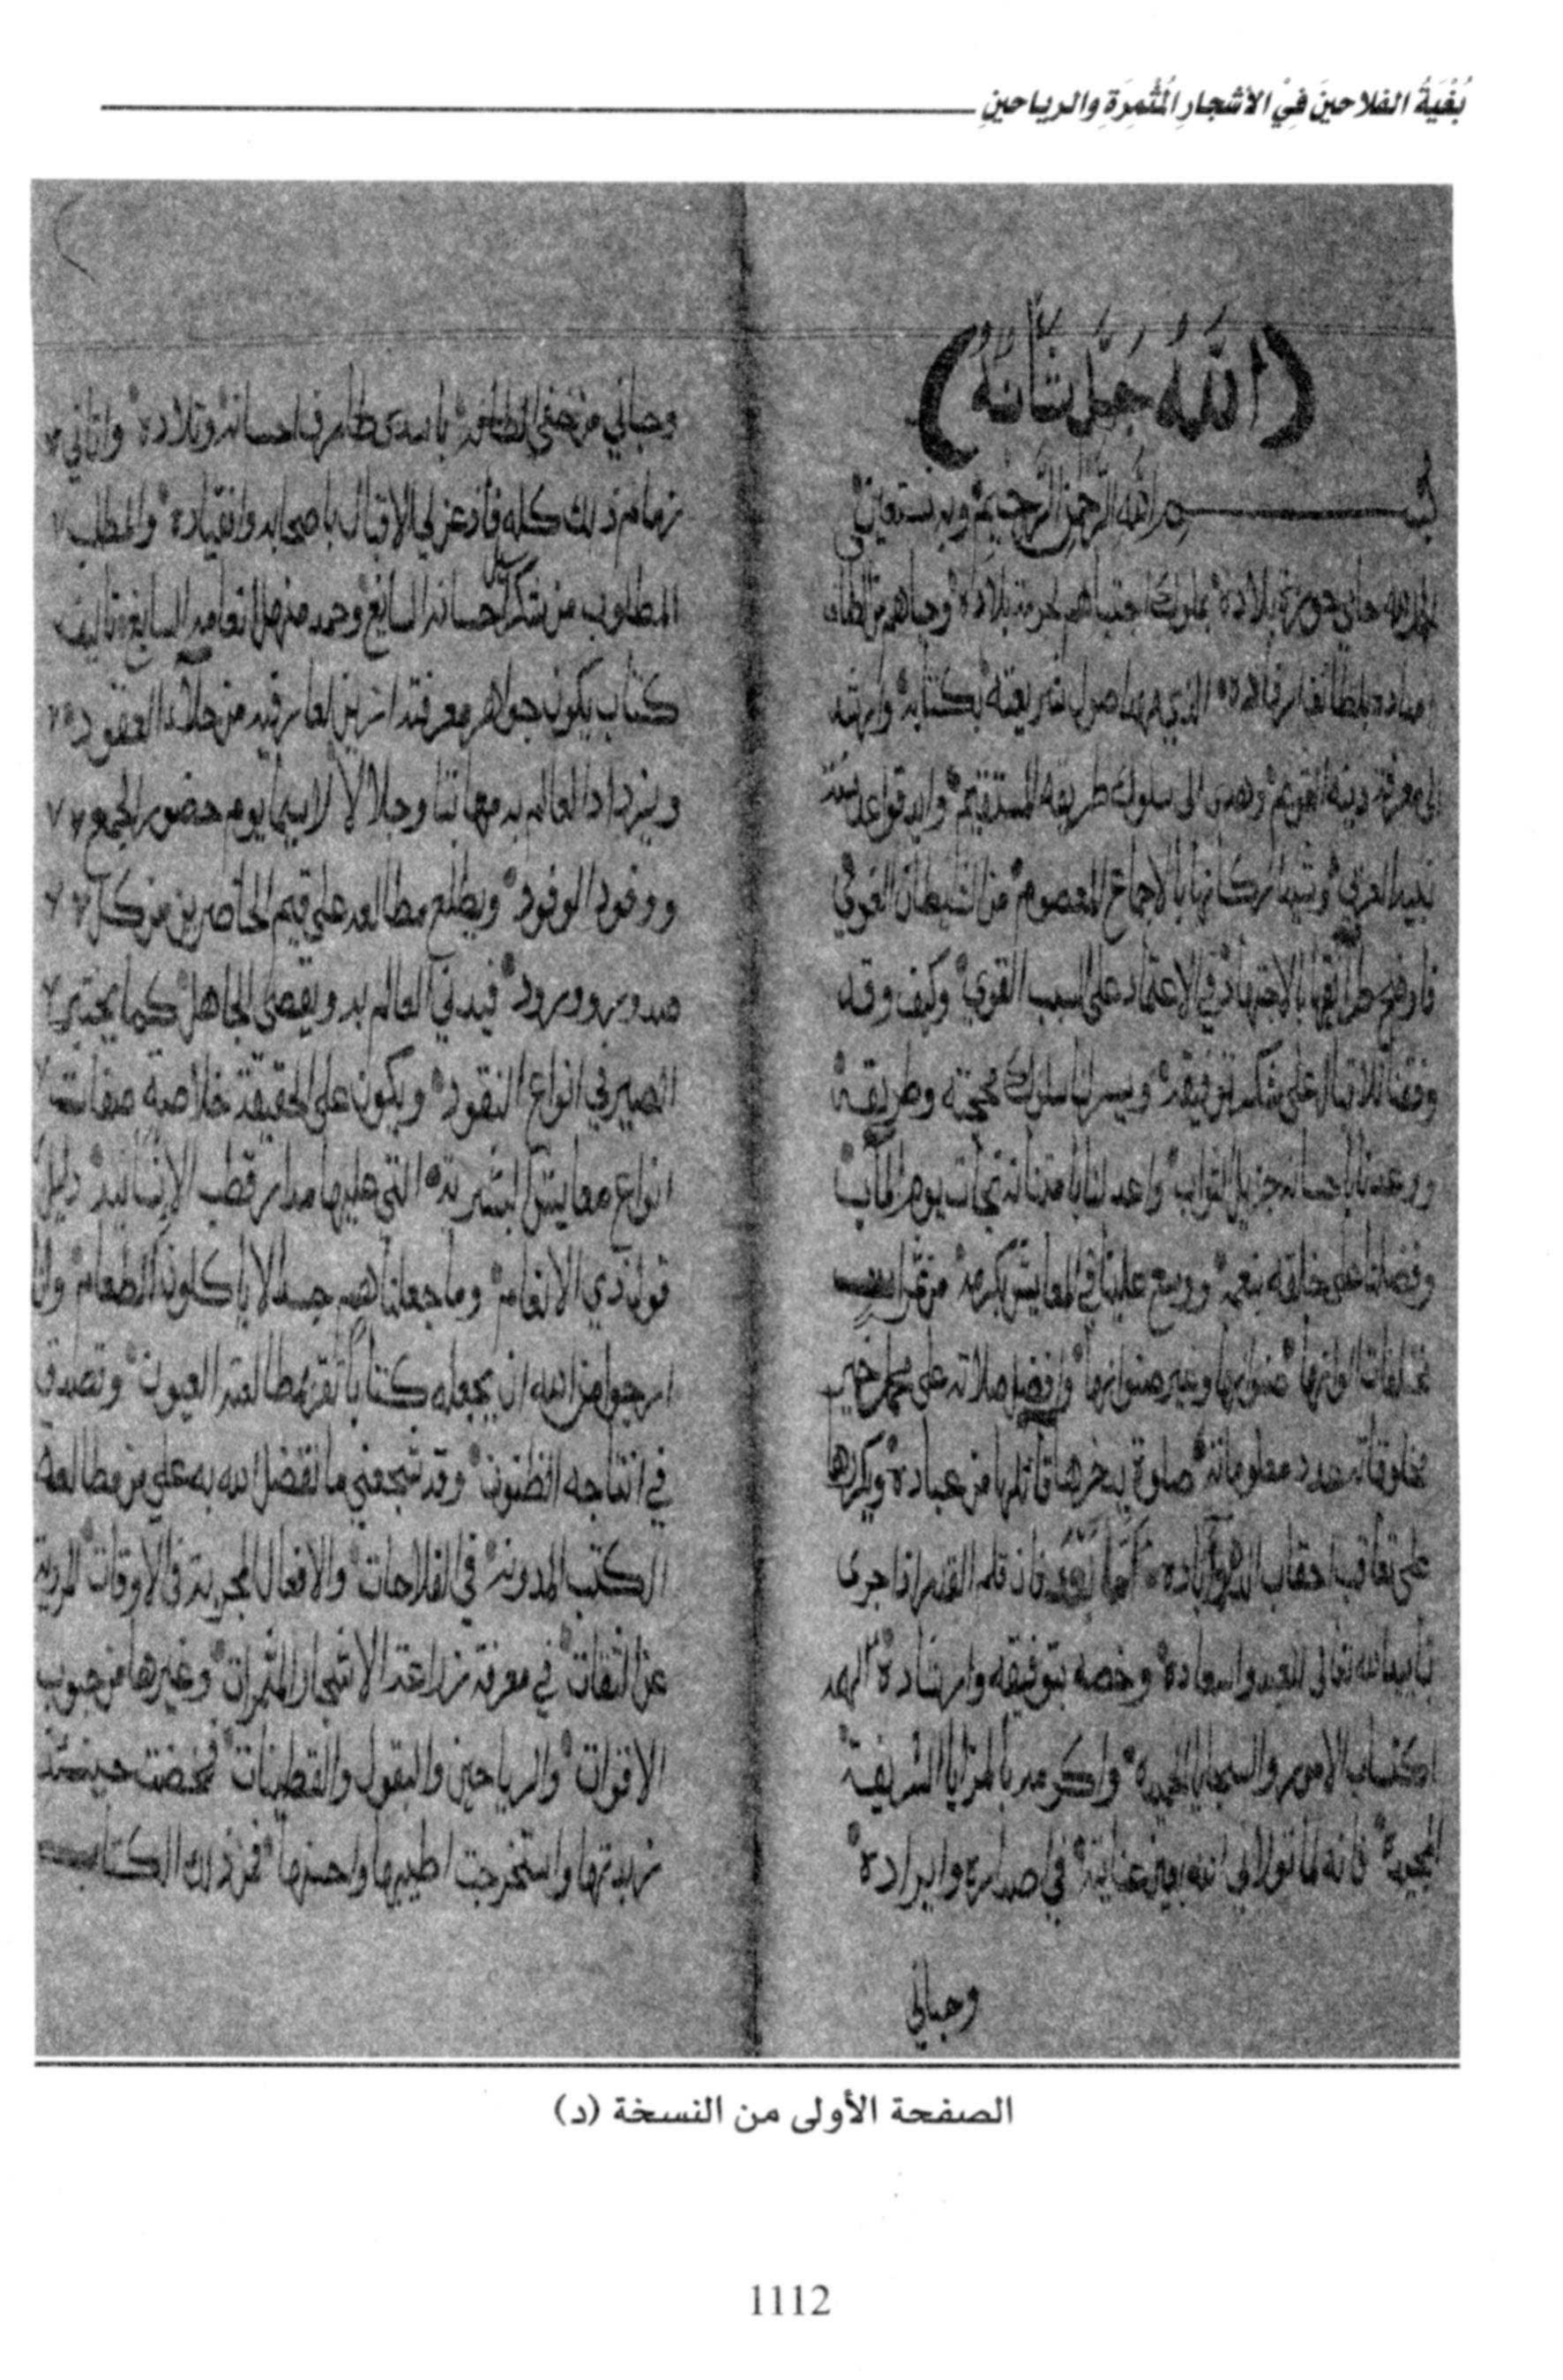 بُغْيَةُ الفلاحينَ فِيْ الأشجارِ المُثْمِرَةِ والرياحينِ
(اللَّهُ جَلَّ شَأْنُهُ)
بسم الله الرحمن الرحيم وبه نستعين
الحمد لله حامي حوزة بلاده بملوك اجتباهم لحرمة بلاده وحباهم من
الى معرفة دينه القويم وهدى الى سلوك طريقه المستقيم وايد قواعد سنة
نبيه العربي وشيد اركانها بالاجماع المعصوم من الشيطان الغوي
فاوضح طرائقها بالاجتهاد في الاعتماد على السبب القوي وكيف وقد
وفقنا للاقبال على شكر توفيقه ويسر لنا سلوك محجته وطريقه
ووعدنا باحسانه جزيل الثواب واعد لنا بامتنانه يوم المآب
وفضلنا على خلقه بنعمه ووسع علينا في المعايش بكرمه من ثمرات
مختلفات الوانها صنوانها وغير صنوانها وافضل صلاته على محمد خير
مخلوقاته عدد معلوماته صلوة يدخرها قائلها من عباده ويكررها
على تعاقب احقاب الدهر وآباده أما بعد فان قلم القدر اذا جرى
بتاييد الله تعالى للعبد واسعاده وخصه بتوفيقه وارشاده الهمه
اكتساب الامور والسجايا الحميدة واكرمه بالمزايا الشريفة
المجيدة فانه لما تولاني الله بعين عنايته في اصداره وايراده
وحباني
وحباني من خفي الطافه باسدى طارف احسانه وتلاده واتاني
زمام ذلك كله فاذعن لي الاقبال باصحابه وانقياده والمطلب
المطلوب من شكر احسانه السابغ وحمد منهل انعامه السايغ تاليف
كتاب يكون جواهر معرفته ازين لعارفيه من حلاء العقود
ويزداد العالم به مهابتا وجلالا لا سيما يوم حضور الجمع
ووفود الوفود ويطلع مطالعه على قيم الحاضرين من كل
صدور وورود فيدني العالم به ويقصى الجاهل كما يجتبي
الصيرفي انواع النقود ويكون على الحقيقة خلاصة صفات
انواع معايش البشرية التي عليها مدار قطب الإنسانية دليل
قول ذي الانعام وما جعلناهم جسدا لا ياكلون الطعام وانا
ارجوا من الله ان يجعله كتابا تقر بمطالعته العيون وتصدق
في انتاجه الظنون وقد شجعني ما تفضل الله به علي من مطالعة
الكتب المدونة في الفلاحات والافعال المجربة في الاوقات المروية
عن الثقات في معرفة زراعة الاشجار المثمرات وغيرها من حبوب
الاقوات والرياحين والبقول والقطينات فمخضت حينئذ
زبدتها واستخرجت اطيبها واحسنها فمن ذلك الكتاب
الصفحة الأولى من النسخة (د)
1112